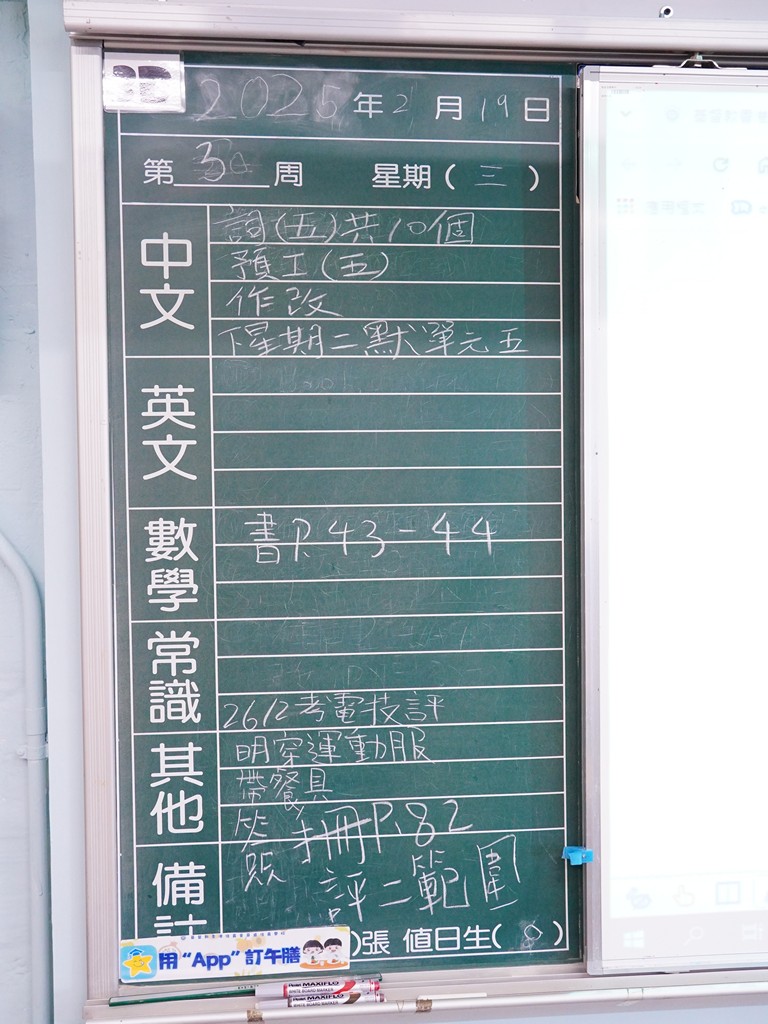 2025年2月19日
第 30 周 星期(三)
中文
詞(五)共10個
預工(五)
作改
下星期二默單元五
英文
數學
書P.43-44
常識
26/2考電技評
其他
明穿運動服
帶餐具
簽手冊P.82
備註
評二範圍
用“App”訂午膳
)張 值日生(8)
Pentel MAXIFLO
WHITE BOARD MARKER
Pentel MAXIFLO
WHITE BOARD MARKER